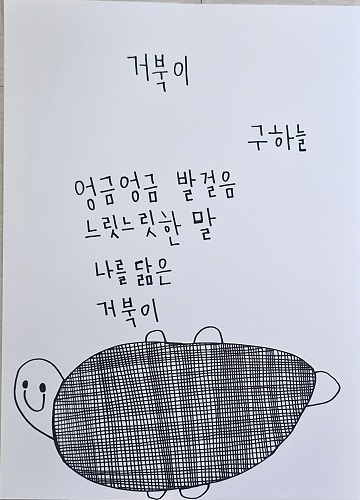 거북이
구하늘
엉금엉금 발걸음
느릿느릿한 말
나를 닮은
거북이